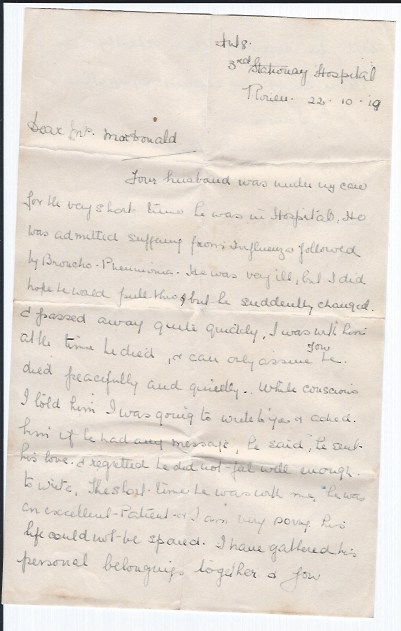 3rd Stationary Hospital
Rouen. 22-10-19
Dear Mrs. MacDonald
Your husband was under my care
for the very short time he was in Hospital, He
was admitted suffering from Influenza followed
by Broncho-Pneumonia. He was very ill, but I did
hope he would pull thro, but he suddenly changed.
& passed away quite quickly, I was with him
at the time he died, & can only assure you he
died peacefully and quietly. While conscious
I told him I was going to write to you & asked
him if he had any message, he said, he sent
his love & regretted he did not feel well enough
to write, The short time he was with me, he was
an excellent Patient & I am very sorry his
life could not be spared. I have gathered his
personal belongings together &